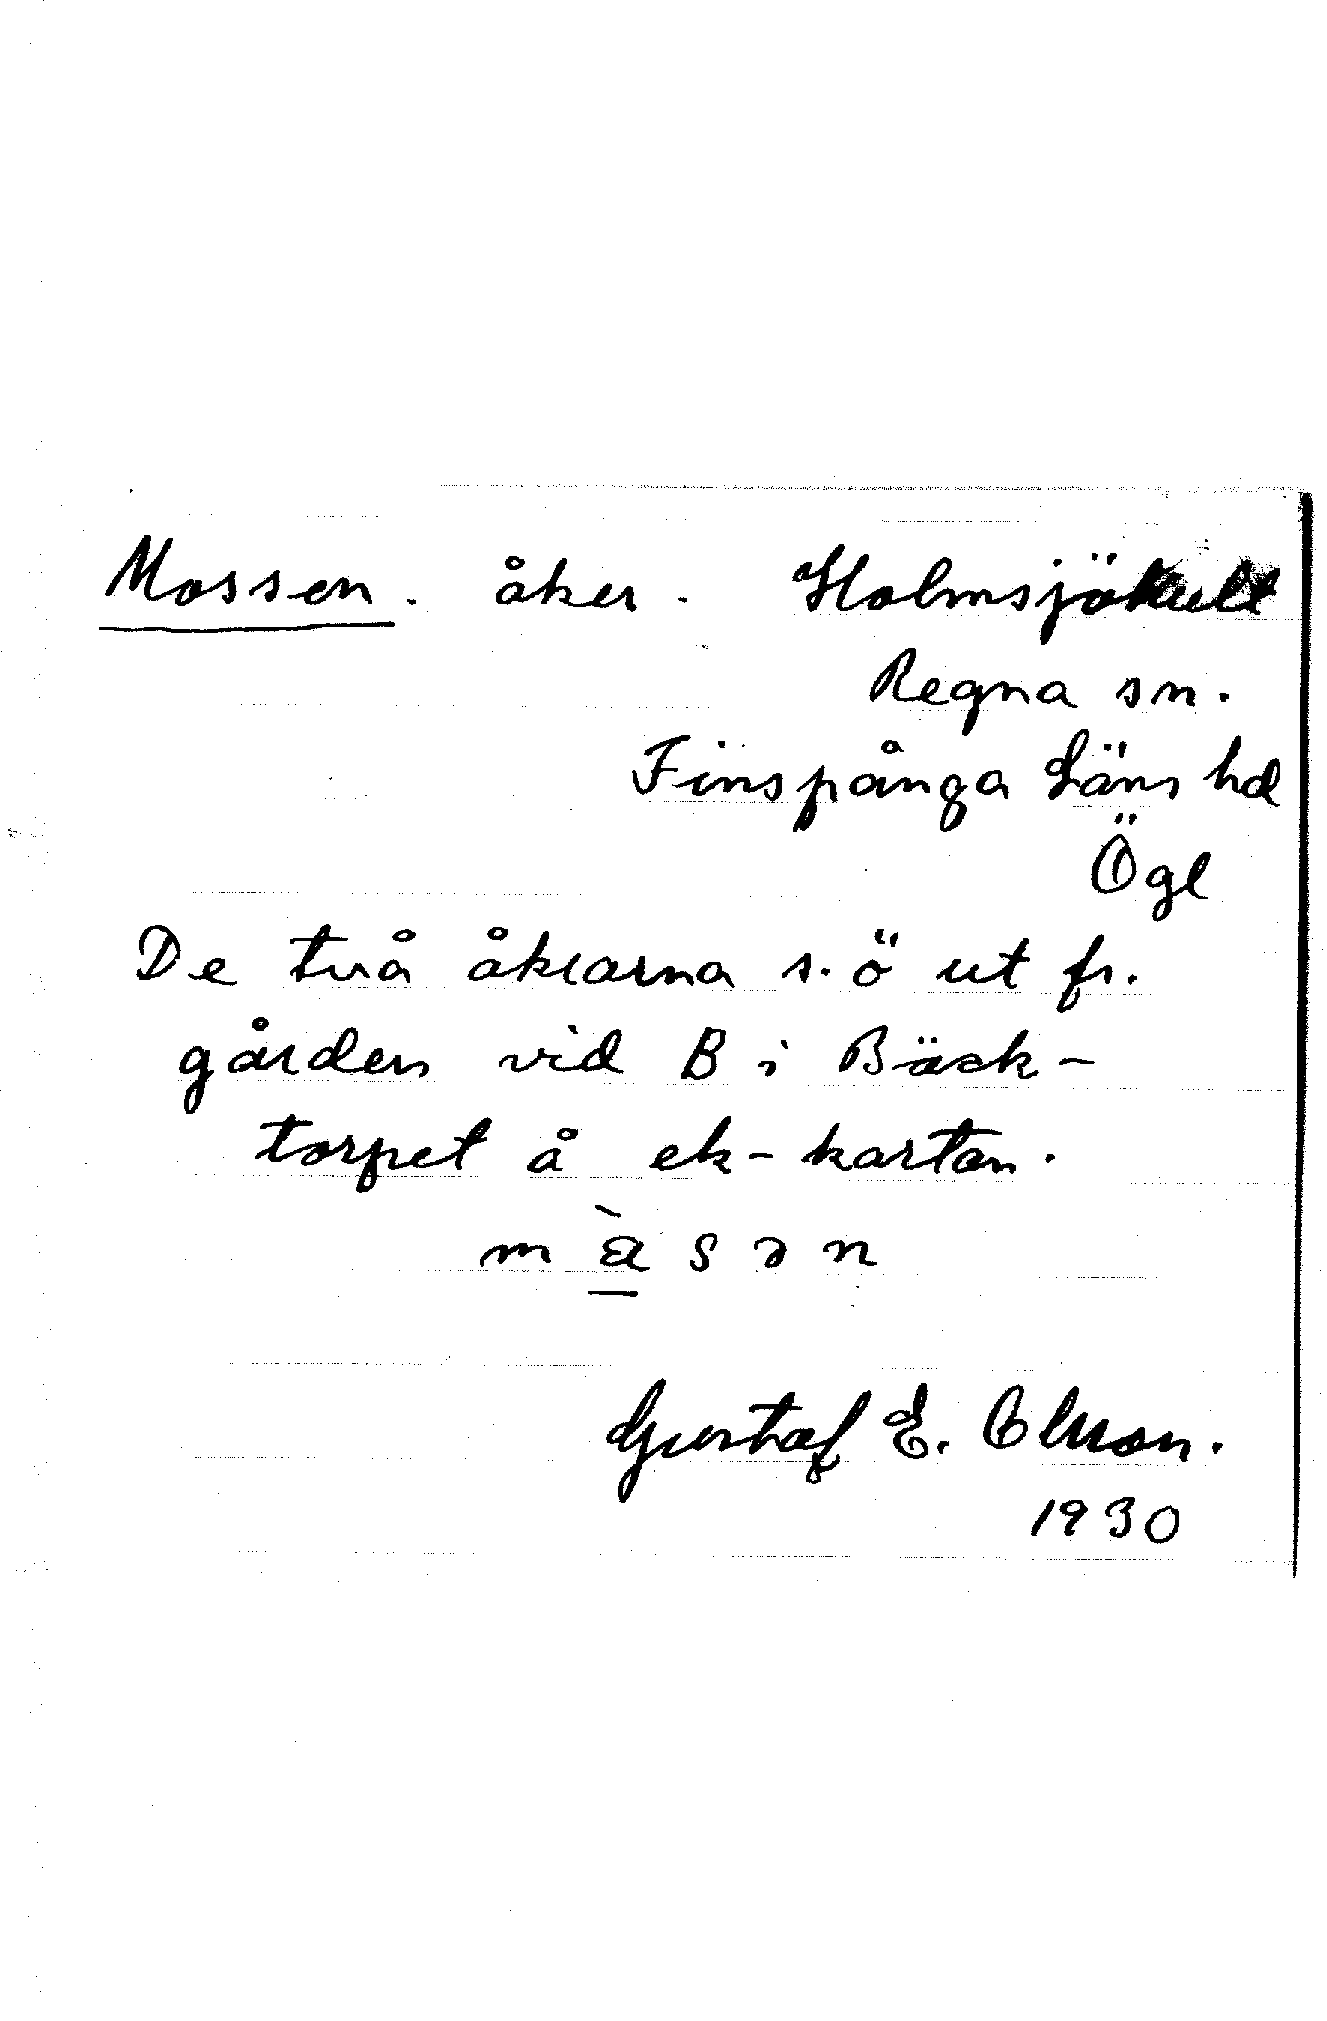 Mossen. åker. Holmsjökult
Regna sn.
Finspånga Läns hd
Ögl
De två åkrarna s.ö ut fr.
gården vid B i Bäck-
torpet å ek-kartan.
m à̱ s ə n
Gustaf E. Olsson.
1930